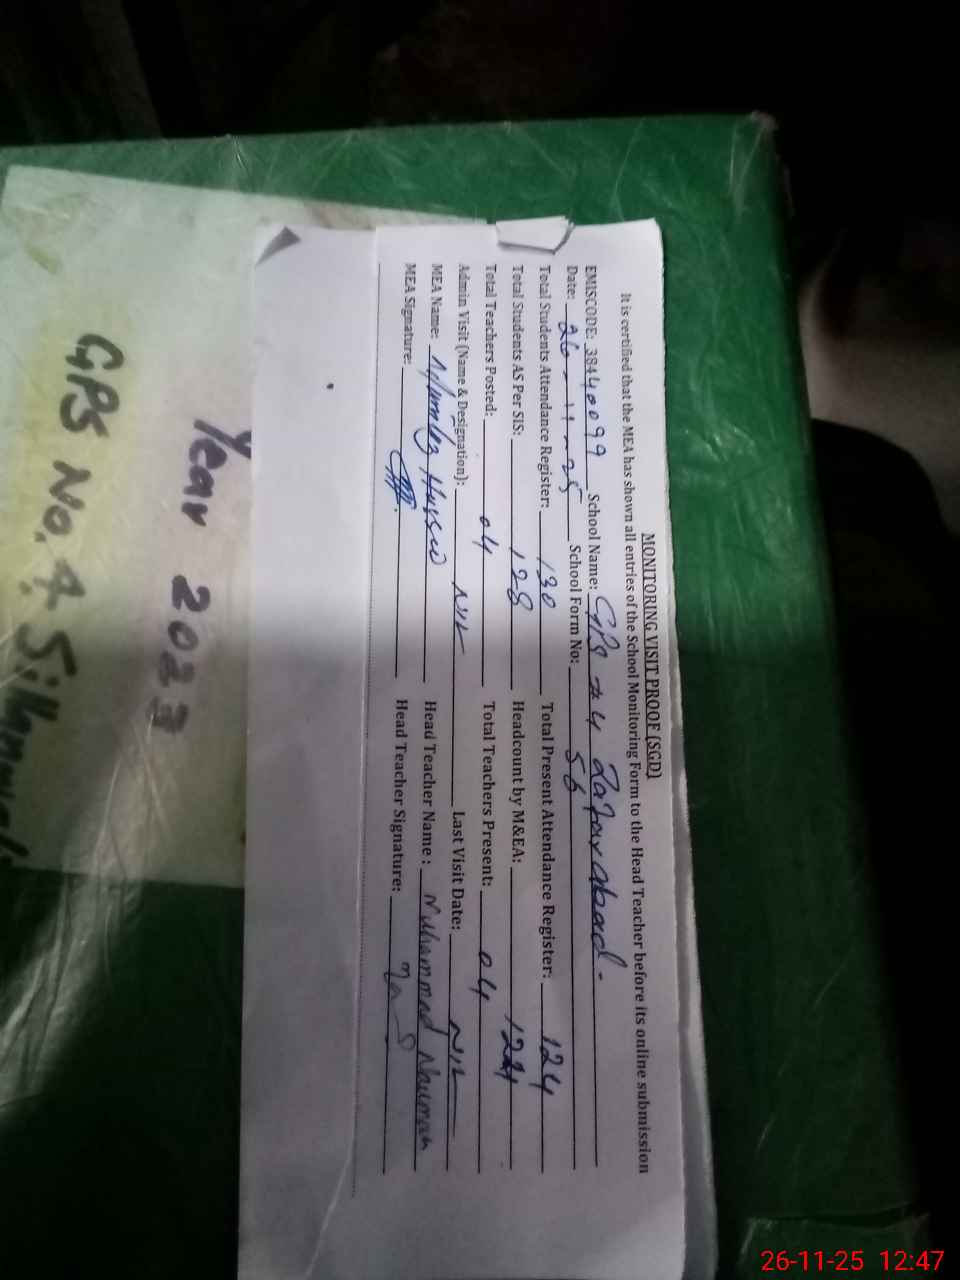 MONITORING VISIT PROOF (SGD)
It is certified that the MEA has shown all entries of the School Monitoring Form to the Head Teacher before its online submission
EMISCODE: 38440099 School Name: GPS # 4 Zafarabad.
Date: 26-11-25 School Form No: 56
Total Students Attendance Register: 130 Total Present Attendance Register: 124
Total Students AS Per SIS: 128 Headcount by M&EA: 124
Total Teachers Posted: 04 Total Teachers Present: 04
Admin Visit (Name & Designation): NIL Last Visit Date: NIL
MEA Name: Head Teacher Name: Muhammad Nauman
MEA Signature: Head Teacher Signature:
Year 2023
GPS No. 4
26-11-25 12:47